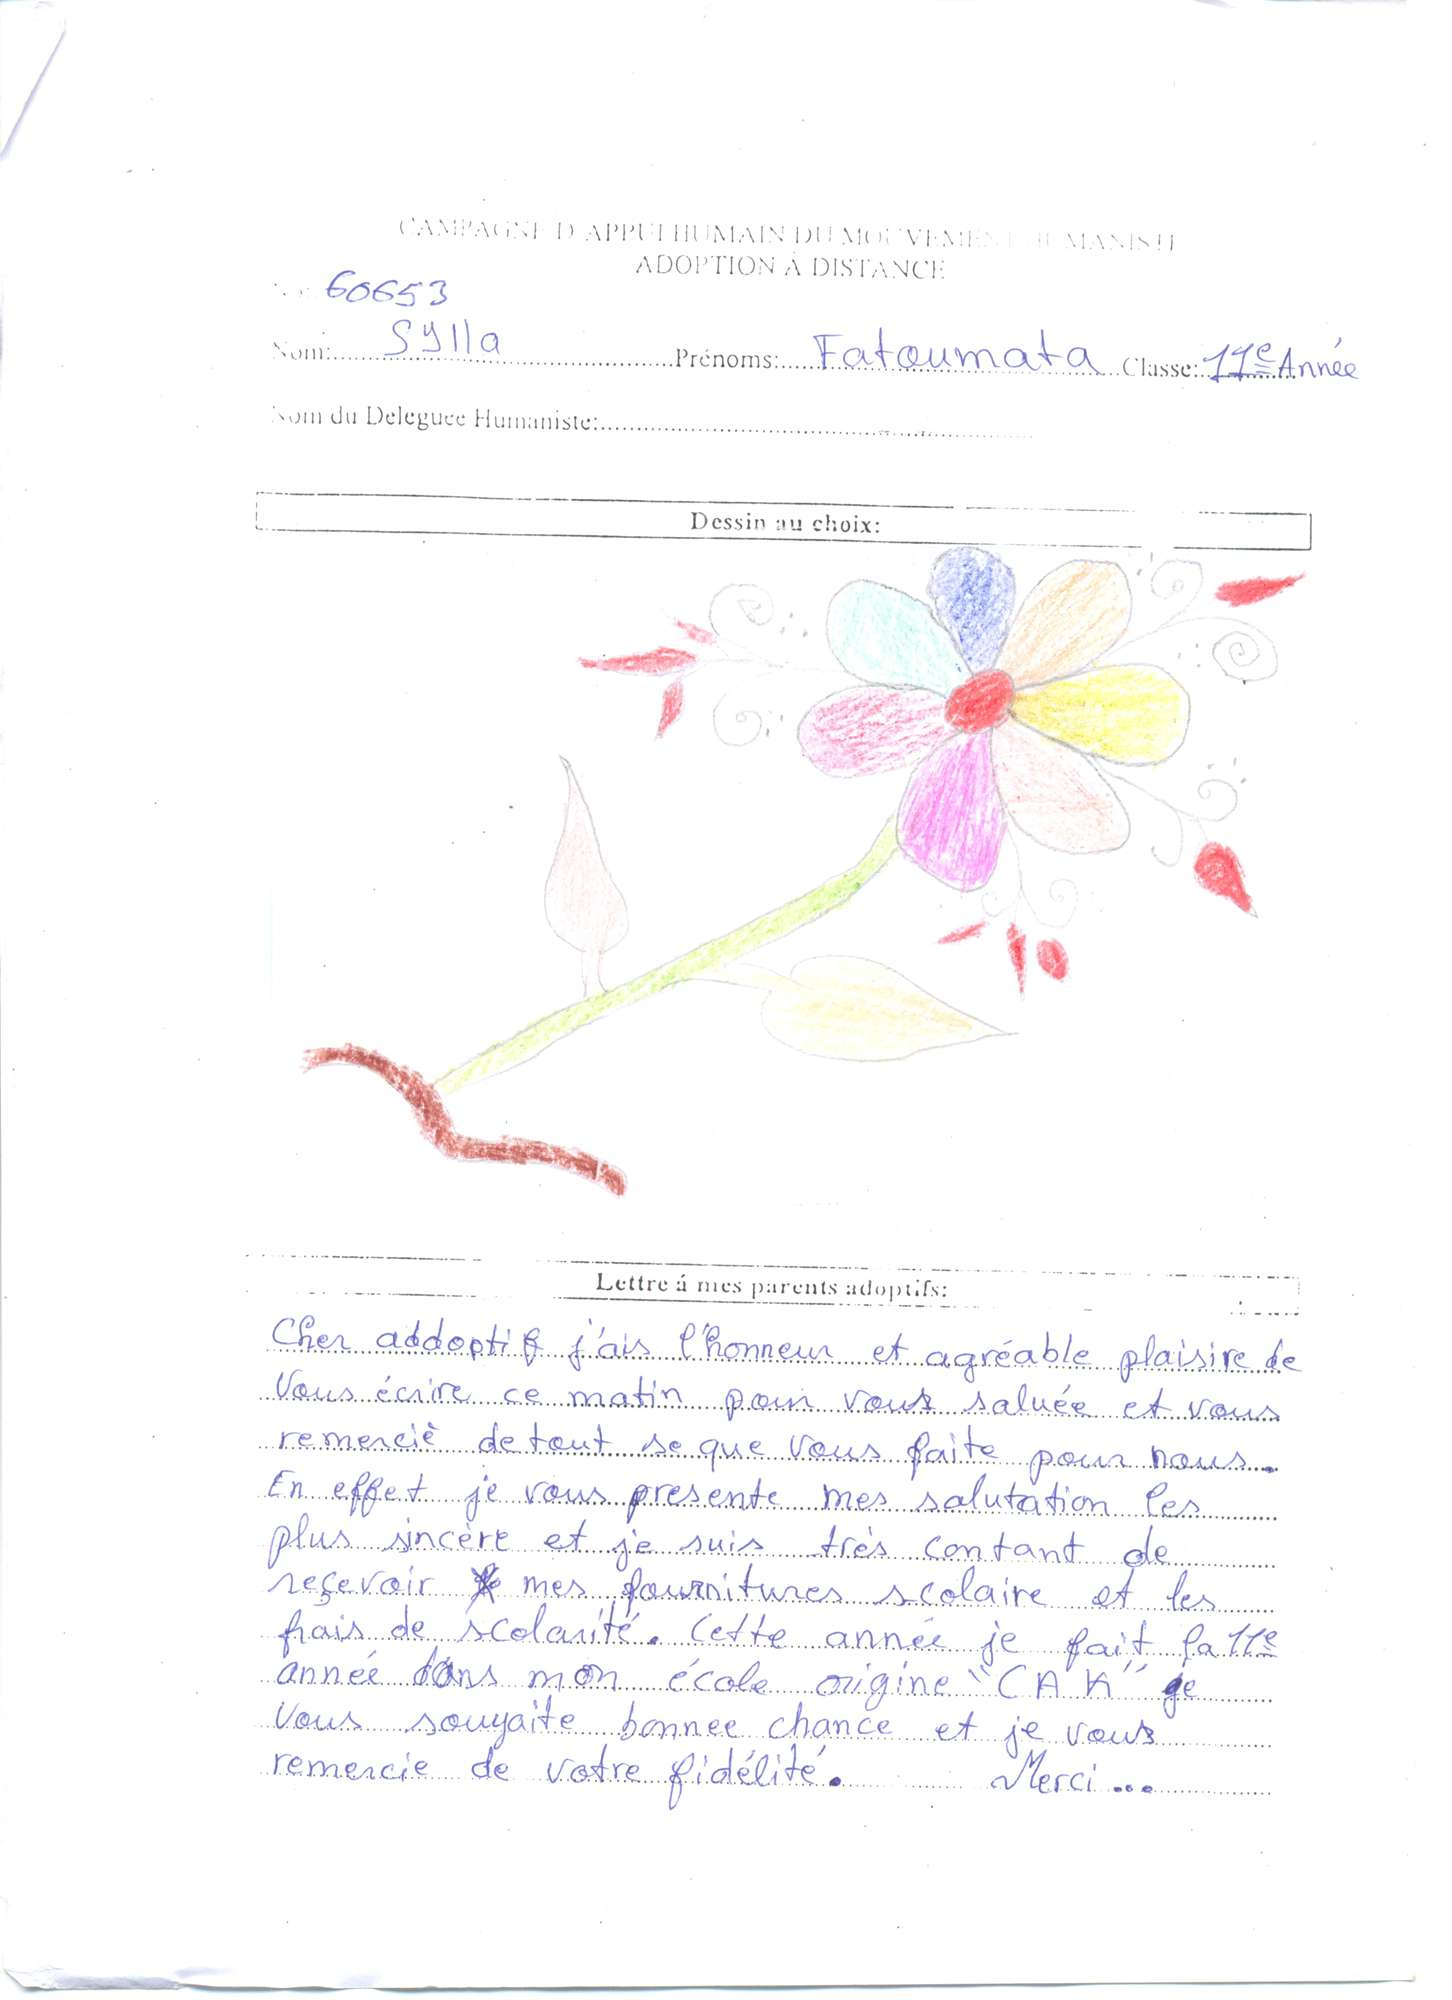 CAMPAGNE D'APPUI HUMAIN DU MOUVEMENT HUMANISTE
ADOPTION À DISTANCE
60653
Nom: Sylla Prénoms: Fatoumata Classe: 11e Année
Nom du Deleguee Humaniste:
Dessin au choix:
Lettre á mes parents adoptifs:
Cher addoptif j'ais l'honneur et agréable plaisire de
Vous écrire ce matin pour vous saluée et vous
remerciè de tout se que vous faite pour nous.
En effet je vous presente mes salutation les
plus sincère et je suis très contant de
reçevoir mes fournitures scolaire et les
frais de scolarité. Cette année je fait la 11e
année dans mon école origine "CAK" je
Vous souyaite bonnee chance et je vous
remercie de votre fidélité. Merci...